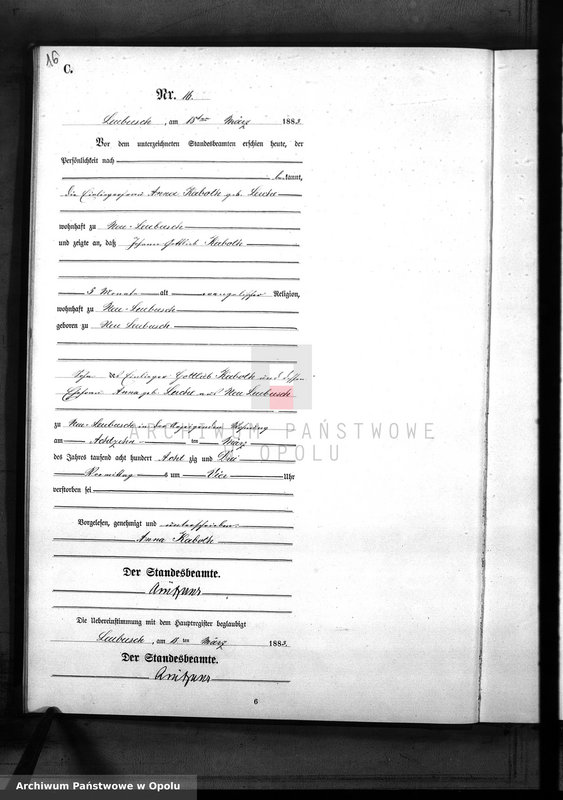 16
C.
Nr. 16.
Leubusch, am 18ten März 1883.
Vor dem unterzeichneten Standesbeamten erschien heute, der
Persönlichkeit nach
bekannt,
die Einliegersfrau Anna Kuboth geb. Lerche
wohnhaft zu Neu-Leubusch
und zeigte an, daß Johann Gottlieb Kuboth
3 Monate alt evangelischer Religion,
wohnhaft zu Neu-Leubusch
geboren zu Neu Leubusch
Sohn des Einlieger Gottlieb Kuboth und dessen
Ehefrau Anna geb. Lerche aus Neu Leubusch
zu Neu-Leubusch in der Wohnung
am achtzehn ten März
des Jahres tausend acht hundert acht zig und Drei
Vormittags um Vier Uhr
verstorben sei
Vorgelesen, genehmigt und unterschrieben
Anna Kuboth
Der Standesbeamte.
Die Uebereinstimmung mit dem Hauptregister beglaubigt
Leubusch, am ten März 1883.
Der Standesbeamte.
6
ARCHIWUM PAŃSTWOWE
OPOLU
Archiwum Państwowe w Opolu